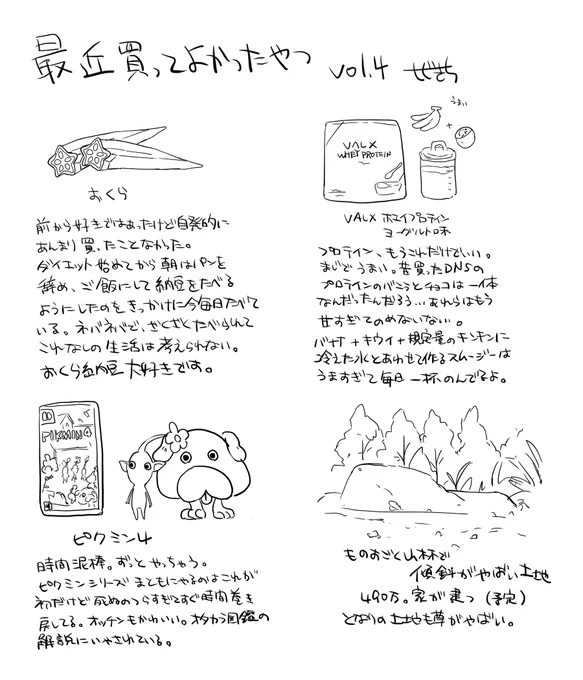 最近買ってよかったやつ vol.4 ぜぜち
うまい
VALX
WHEY PROTEIN
おくら
前から好きではあったけど自発的に
あんまり買ったことなかった。
ダイエット始めてから朝はパンを
辞め、ご飯にして納豆をたべる
ようにしたのをきっかけに今毎日たべて
いる。ネバネバで、ざくざくたべられて
これなしの生活は考えられない。
おくら納豆大好きです。
VALX ホエイプロテイン
ヨーグルト味
プロテイン、もうこれだけでいい。
まじでうまい。昔買ったDNSの
プロテインのバニラとチョコは一体
なんだったんだろう…あれらはもう
甘すぎてのめないない。
バナナ+キウイ+規定量のキンキンに
冷えた水とあわせて作るスムージーは
うますぎて毎日一杯のんでるよ。
PIKMIN 4
ピクミン4
時間泥棒。ずっとやっちゃう。
ピクミンシリーズまともにやるのはこれが
初だけど死ぬのつらすぎてすぐ時間巻き
戻してる。オッチンもかわいい。オタカラ図鑑の
解説にいやされている。
ものすごく山林で
傾斜がやばい土地
490万。家が建つ(予定)
となりの土地も草がやばい。